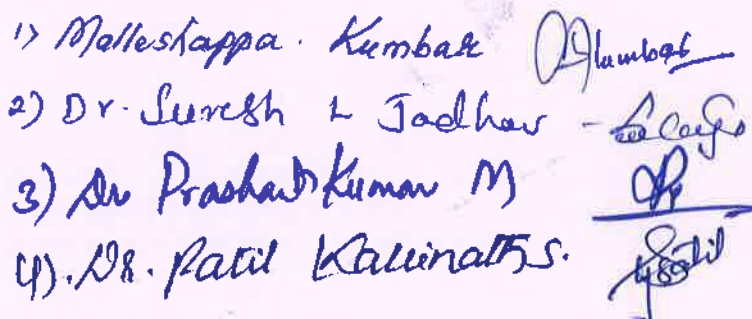 1) Malleshappa. Kumbar Kumbar
2) Dr. Suresh L Jadhav -
3) Dr Prashanth Kumar M
4). Dr. Patil Kallinath S. Patil